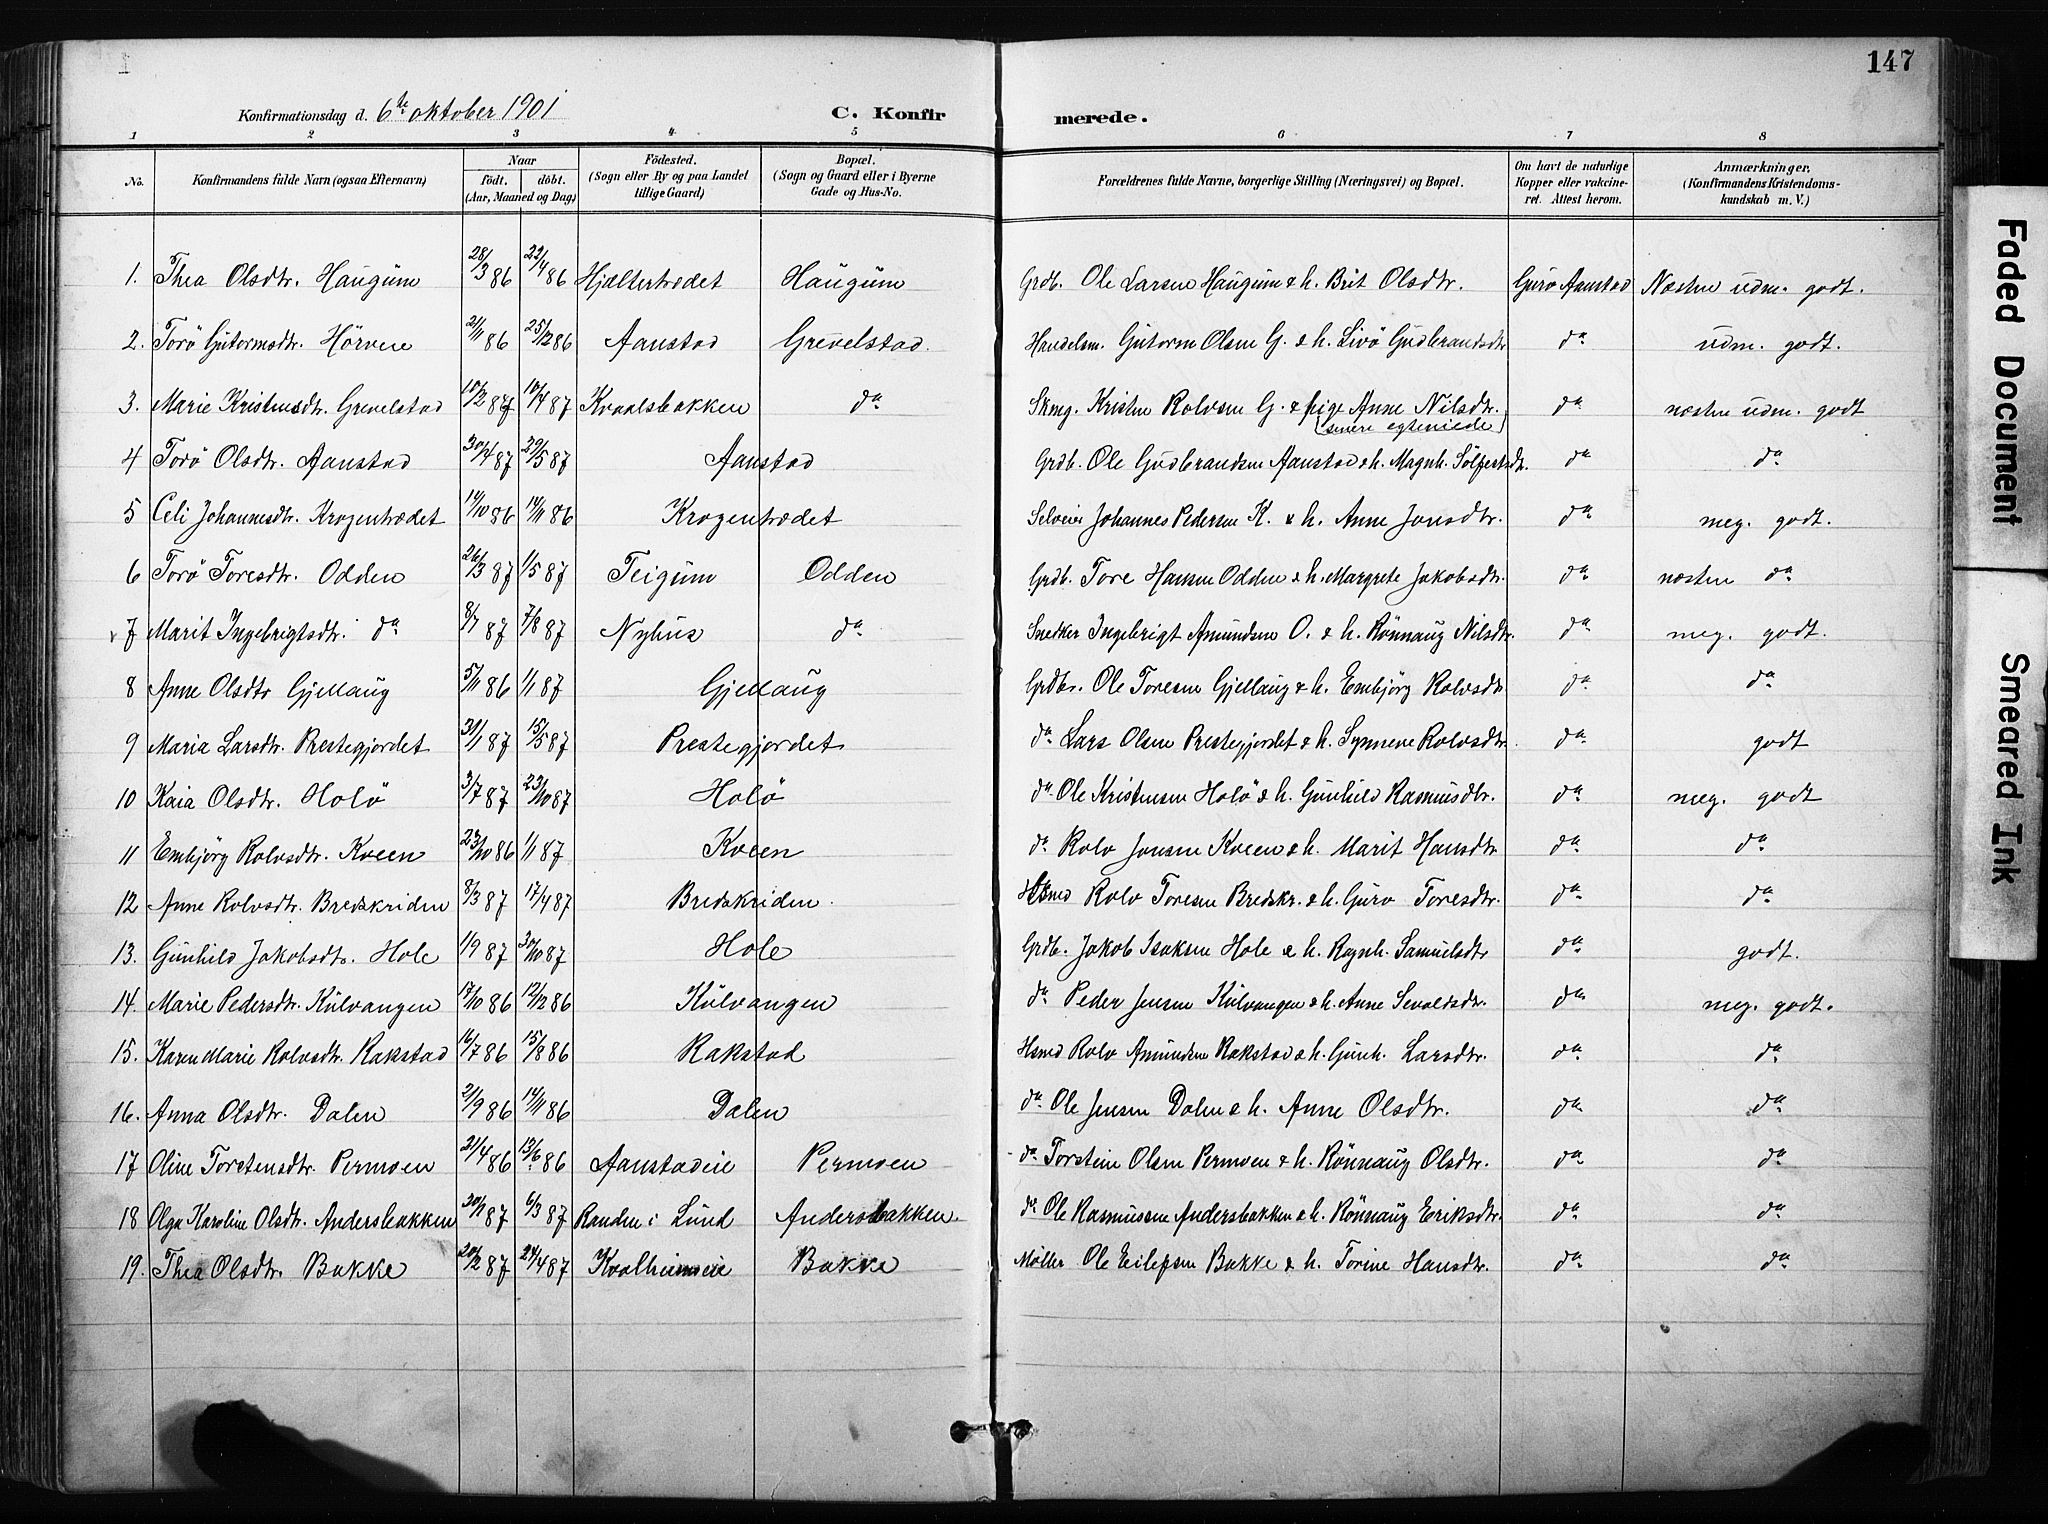 147
Konfirmationsdag d. 6te oktober 1901 C. Konfirmerede.
1 2 3 4 5 6 7 8
No. Konfirmandens fulde Navn (ogsaa Efternavn) Naar født. døbt. (Aar, Maaned og Dag) Fødested. (Sogn eller By og paa Landet tillige Gaard) Bopæl. (Sogn og Gaard eller i Byerne Gade og Hus-No. Forældrenes fulde Navne, borgerlige Stilling (Næringsvei) og Bopæl. Om havt de naturlige Kopper eller vakcineret. Attest herom. Anmærkninger. (Konfirmandens Kristendomskundskab m. V.)
1. Thea Olsdtr. Haugum 28/3 86 22/4 86 Hjeltertrædet Haugum Grdb. Ole Larsen Haugum & h. Brit Olsdtr. Guro Aanstad Næsten udm. godt.
2. Torø Gutormsdtr. Hørven 2/11 86 25/12 86 Aanstad Grevelstad. Handelsm. Gutorm Olsen G. & h. Livø Gudbrandsdtr da udm. godt.
3. Marie Kristensdtr. Grevelstad 10/2 87 10/4 87 Kvaalsbakken da Skmg. Kristen Rolvsen G. & pige Anne Nilsdtr. (senere egteviede) da næsten udm. godt
4 Torø Olsdtr. Aanstad 30/4 87 29/5 87 Aanstad Grdb. Ole Gudbrandsen Aanstad & h. Magnh. Sølfestsdtr. da da
5 Celi Johannesdtr. Krogentrædet 14/10 86 14/11 86 Krogentrædet Selveier Johannes Pedersen K. & h. Anne Jonsdtr. da meg. godt.
6 Torø Toresdtr. Odden 26/3 87 1/5 87 Teigum Odden Grdb. Tore Hansen Odden & h. Margrete Jakobsdtr. da næsten da
7 Marit Ingebrigtsdtr. da 8/7 87 7/8 87 Nyhus da Snedker Ingebrigt Amundsen O. & h. Rønnaug Nilsdtr. da meg. godt.
8 Anne Olsdtr Gjellaug 5/11 86 1/1 87 Gjellaug Grdbr. Ole Toresen Gjellaug & h. Embjørg Rolvsdtr da da
9 Maria Larsdtr. Prestegjordet 31/1 87 15/5 87 Prestegjordet da Lars Olsen Prestegjordet & h. Synneve Rolvsdtr. da godt
10 Kaia Olsdtr. Holø 3/7 87 23/10 87 Holø da Ole Kristensen Holø & h. Gunhild Rasmusdtr. da meg. godt
11 Embjørg Rolvsdtr. Kveen 23/10 86 1/1 87 Kveen da Rolv Jonsen Kveen & h. Marit Hansdtr da da
12 Anne Rolvsdtr. Bredskriden 8/3 87 17/4 87 Bredskriden. Hsmd Rolv Toresen Bredskr. & h. Guro Toresdtr. da da
13. Gunhild Jakobsdtr. Hole 1/9 87 30/10 87 Hole Grdb. Jakob Isaksen Hole & h. Ragnh. Samuelsdtr da godt.
14. Marie Pedersdtr. Kulvangen 17/10 86 12/12 86 Kulvangen da Peder Jensen Kulvangen & h. Anne Sevaldsdtr. da meg. godt.
15. Karen Marie Rolvsdtr. Rakstad 16/7 86 15/8 86 Rakstad Hsmd Rolv Amunden Rakstad & h. Gunh. Larsdtr. da da
16. Anna Olsdtr. Dalen 21/9 86 14/11 86 Dalen da Ole Jensen Dalen & h. Anne Olsdtr. da da
17 Oline Torstensdtr. Permoen 21/4 86 13/6 86 Aanstadeie Permoen da Torstein Olsen Permoen & h. Rønnaug Olsdtr. da da
18 Olga Karoline Olsdtr. Andersbakken 30/1 87 6/3 87 Randen i Lund Andersbakken. da Ole Rasmussen Andersbakken & h. Rønnaug Eriksdtr. da da
19. Thea Olsdtr. Bakke 20/2 87 24/4 87 Kvalheimseie Bakke Møller Ole Eilefsen Bakke & h. Torine Hansdtr. da da
Faded Document
Smeared Ink